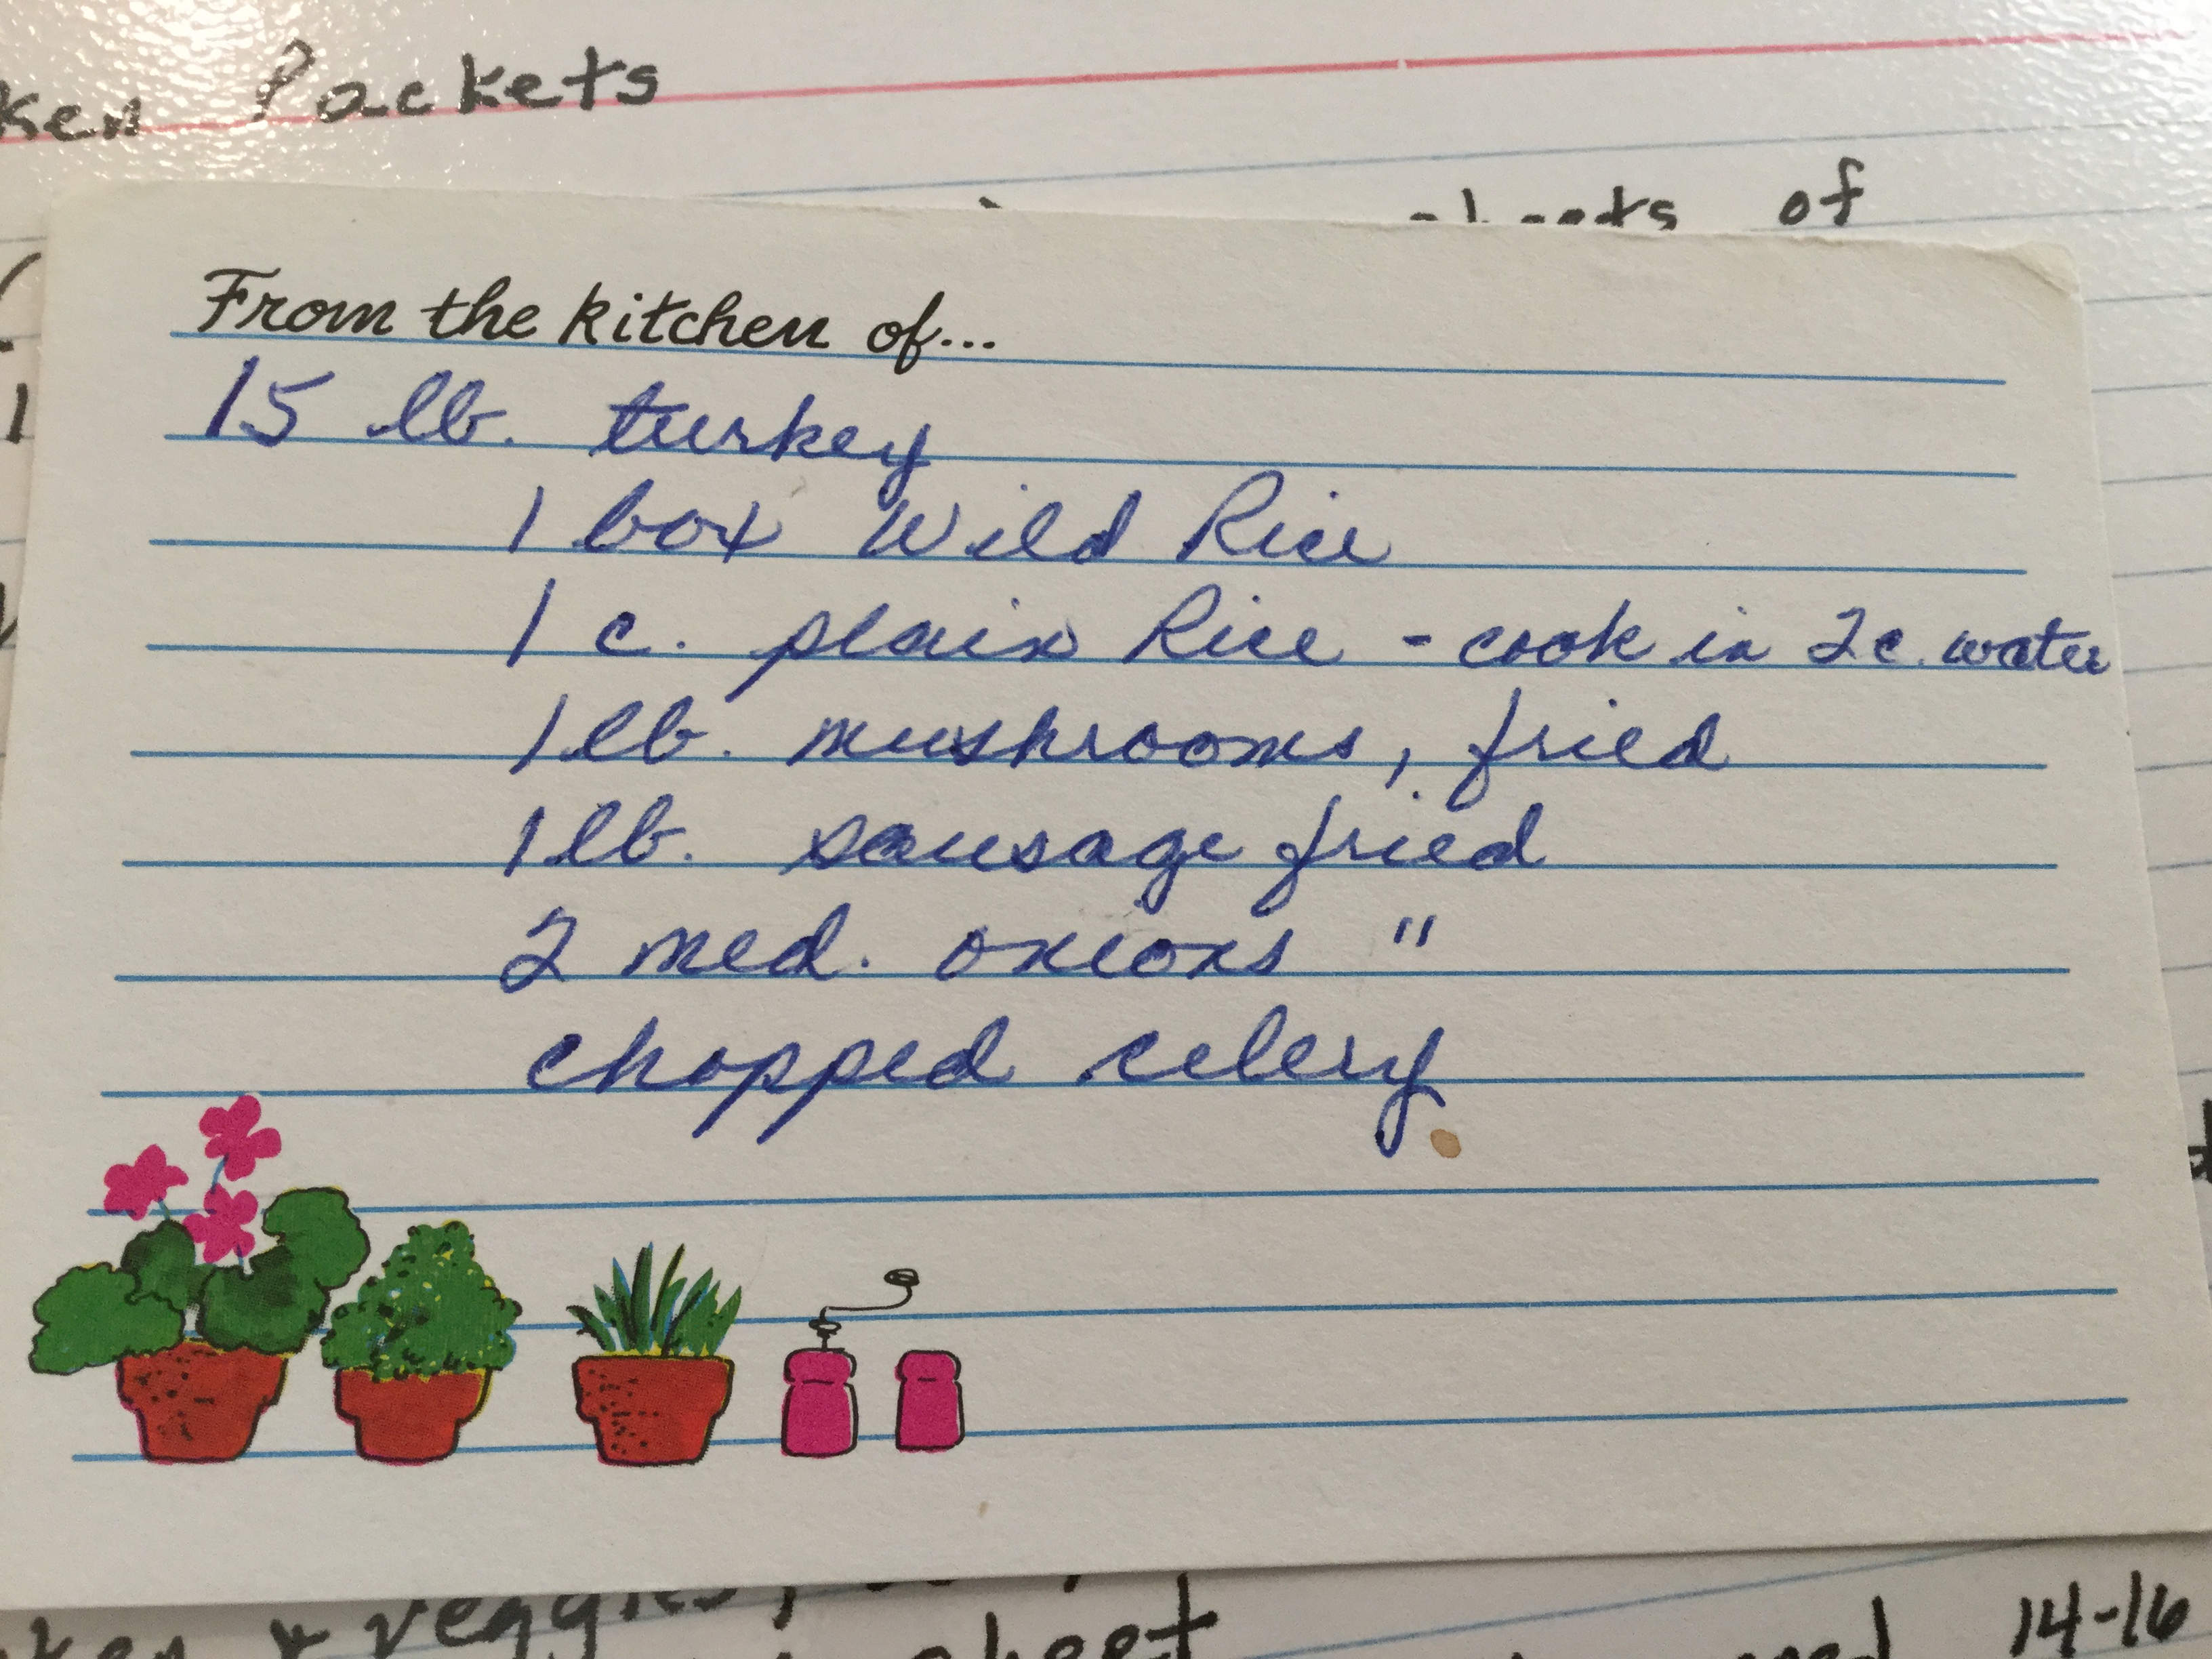 Packets
of
From the kitchen of...
15 lb. turkey
1 box Wild Rice
1 c. plain Rice - cook in 2 c. water
1 lb. mushrooms, fried
1 lb. sausage fried
2 med. onions "
chopped celery
& veggies,
sheet
14-16